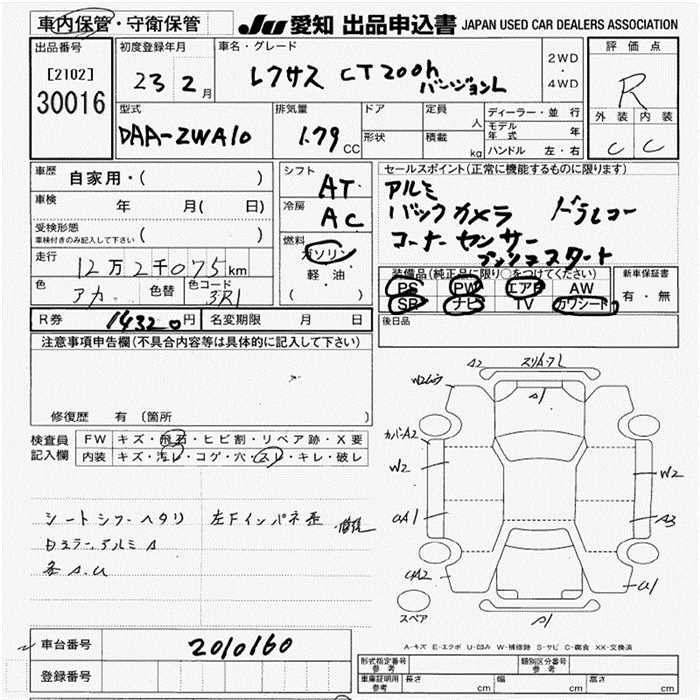 車内保管・守衛保管
JU 愛知 出品申込書 JAPAN USED CAR DEALERS ASSOCIATION
出品番号
[2102]
30016
初度登録年月
23 2月
車名・グレード
レクサス CT200h
バージョンL
2WD
・
4WD
評価点
R
外装 内装
C C
型式
DAA-ZWA10
排気量
1.79 CC
ドア
形状
定員 人
積載 kg
ディーラー・並行
モデル年式 年
ハンドル 左・右
車歴 自家用・( )
車検 年 月( 日)
受検形態
車検付きのみ記入して下さい ( )
走行 12万2千075km
色 アカ 色替 色コード 3R1
シフト AT
冷房 AC
燃料 ガソリン
軽・油
( )
セールスポイント(正常に機能するものに限ります)
アルミ
バックカメラ ドラレコー
コーナーセンサー
プッシュスタート
装備品(純正品に限り○をつけてください)
PS PW エアB AW
SR ナビ TV カワシート
新車保証書
有・無
後日品
R券 14320円 名変期限 月 日
注意事項申告欄(不具合内容等は具体的に記入して下さい)
修復歴 有(箇所
検査員記入欄
FW キズ・飛石・ヒビ割・リペア跡・X要
内装 キズ・汚レ・コゲ・穴・スレ・キレ・破レ
シートシワ・ヘタリ 左Fインパネ歪
Bミラー、アルミA
各A.U
A2 スリA・フレ
A1
カバーA2
W2
UA1
UA2
W2
A3
U1
A1
スペア
A-キズ E-エクボ U-凹み W-補修跡 S-サビ C-腐食 XX-交換済
車台番号 2010160
登録番号
形式指定番号
参考
類別区分番号
参考
車庫証明用
参考 長さ cm 幅 cm 高さ cm